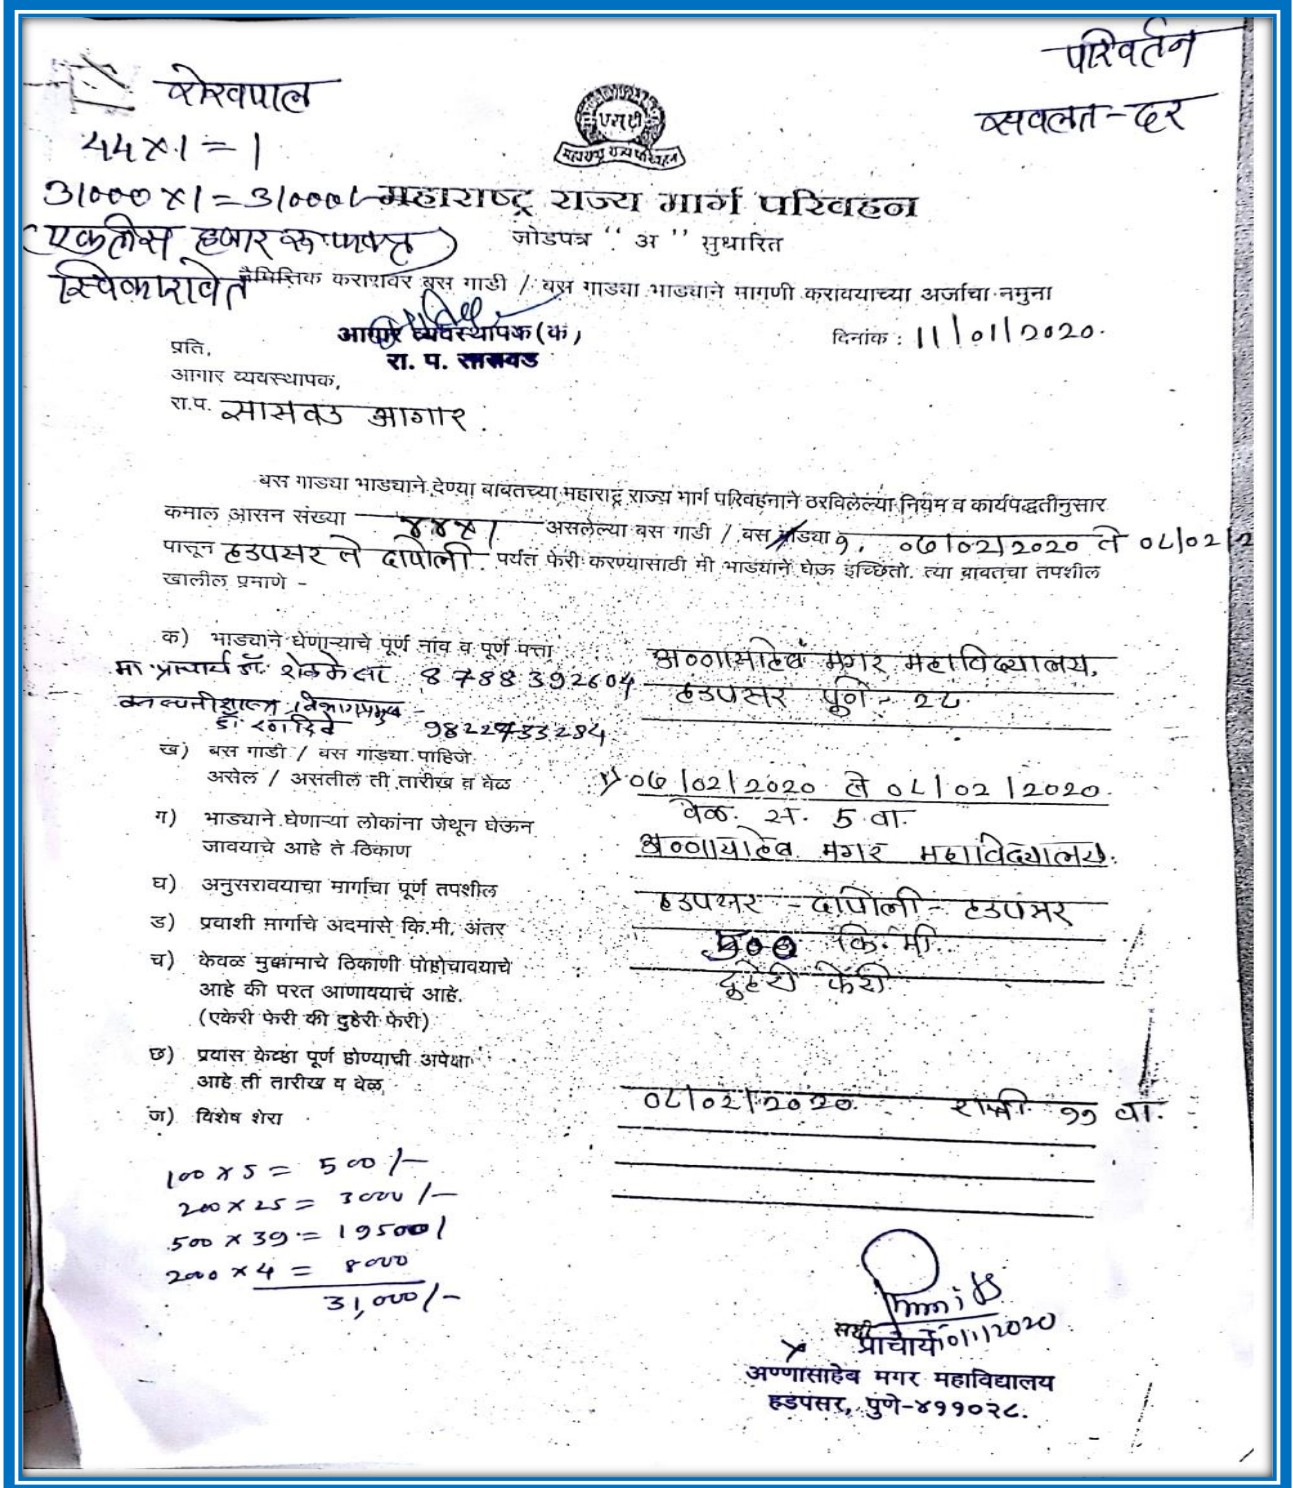 परिवर्तन
रोखपाल
सवलत-दर
44×1=1
31000×1=31000/-
एसटी
महाराष्ट्र राज्य परिवहन
महाराष्ट्र राज्य मार्ग परिवहन
(एकतीस हजार रू. फक्त)
जोडपत्र " अ " सुधारित
स्विकारावेत
नैमित्तिक करारावर बस गाडी / बस गाड्या भाड्याने मागणी करावयाच्या अर्जाचा नमुना
आगार व्यवस्थापक (क)
दिनांक : 11/01/2020.
रा. प. सासवड
प्रति,
आगार व्यवस्थापक,
रा.प. सासवड आगार.
बस गाड्या भाड्याने देण्या बाबतच्या महाराष्ट्र राज्य मार्ग परिवहनाने ठरविलेल्या नियम व कार्यपद्धतीनुसार
कमाल आसन संख्या ४४×१ असलेल्या बस गाडी / बस गाड्या १. ०७/०२/२०२० ते ०८/०२/२
पासून हडपसर ते दापोली पर्यंत फेरी करण्यासाठी मी भाड्याने घेऊ इच्छितो. त्या बाबतचा तपशील
खालील प्रमाणे -
क) भाड्याने घेणाऱ्याचे पूर्ण नांव व पूर्ण पत्ता
अण्णासाहेब मगर महाविद्यालय,
मा. प्राचार्य डॉ. 8788392604
हडपसर पुणे - २८.
वनस्पतीशास्त्र विभागप्रमुख -
डॉ. रणदिवे 9822733284
ख) बस गाडी / बस गाड्या पाहिजे
असेल / असतील ती तारीख व वेळ
०७/०२/२०२० ते ०८/०२/२०२०.
वेळ. स. ५ वा.
ग) भाड्याने घेणाऱ्या लोकांना जेथून घेऊन
जावयाचे आहे ते ठिकाण
अण्णासाहेब मगर महाविद्यालय.
घ) अनुसरावयाचा मार्गाचा पूर्ण तपशील
हडपसर - दापोली - हडपसर
ड) प्रवाशी मार्गाचे अदमासे कि.मी. अंतर
५०० कि.मी.
च) केवळ मुक्कामाचे ठिकाणी पोहोचावयाचे
आहे की परत आणावयाचे आहे.
दुहेरी फेरी
(एकेरी फेरी की दुहेरी फेरी)
छ) प्रवास केव्हा पूर्ण होण्याची अपेक्षा
आहे ती तारीख व वेळ
०८/०२/२०२० रात्री ११ वा.
ज) विशेष शेरा
100 × 5 = 500/-
200 × 25 = 3000/-
500 × 39 = 19500/
2000 × 4 = 8000
31,000/-
सही
प्राचार्य
अण्णासाहेब मगर महाविद्यालय
हडपसर, पुणे-४११०२८.